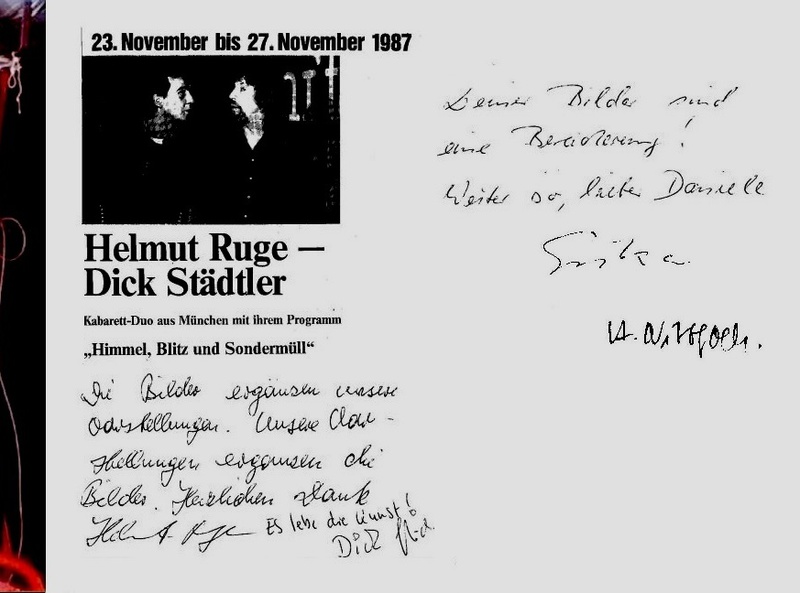 23. November bis 27. November 1987
Helmut Ruge –
Dick Städtler
Kabarett-Duo aus München mit ihrem Programm
„Himmel, Blitz und Sondermüll“
Die Bilder ergänzen unsere
Darstellungen. Unsere Dar-
stellungen ergänzen die
Bilder. Herzlichen Dank
Helmut Ruge Es lebe die Kunst!
Dick
Deine Bilder sind
eine Bereicherung!
Weiter so, lieber Daniele